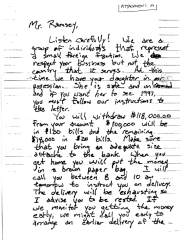 ATTACHMENT A
Mr. Ramsey,
Listen carefully! We are a
group of individuals that represent
a small foreign faction. We
respect your business but not the
country that it serves. At this
time we have your daughter in our
posession. She is safe and unharmed
and if you want her to see 1997,
you must follow our instructions to
the letter.
You will withdraw $118,000.00
from your account. $100,000 will be
in $100 bills and the remaining
$18,000 in $20 bills. Make sure
that you bring an adequate size
attache to the bank. When you
get home you will put the money
in a brown paper bag. I will
call you between 8 and 10 am
tomorrow to instruct you on delivery.
The delivery will be exhausting so
I advise you to be rested. If
we monitor you getting the money
early, we might call you early to
arrange an earlier delivery of the